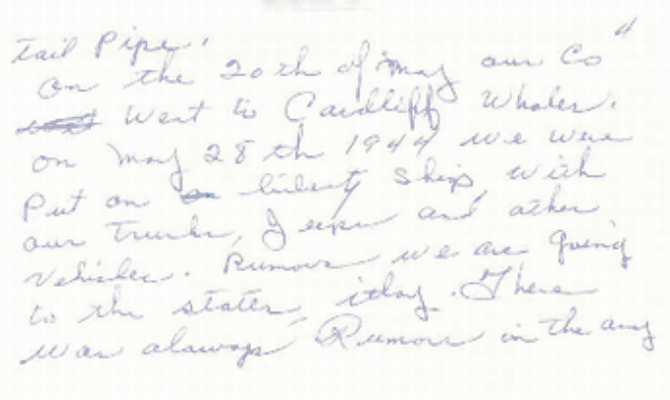 4
tail Pipe.
On the 20th of may our Co
Went to Cardliff Whales.
on may 28th 1944 we were
Put on liberty Ship, with
our Trucks, Jeeps and other
vehicles. Rumors we are going
to the states, italy. There
was always Rumors in the army